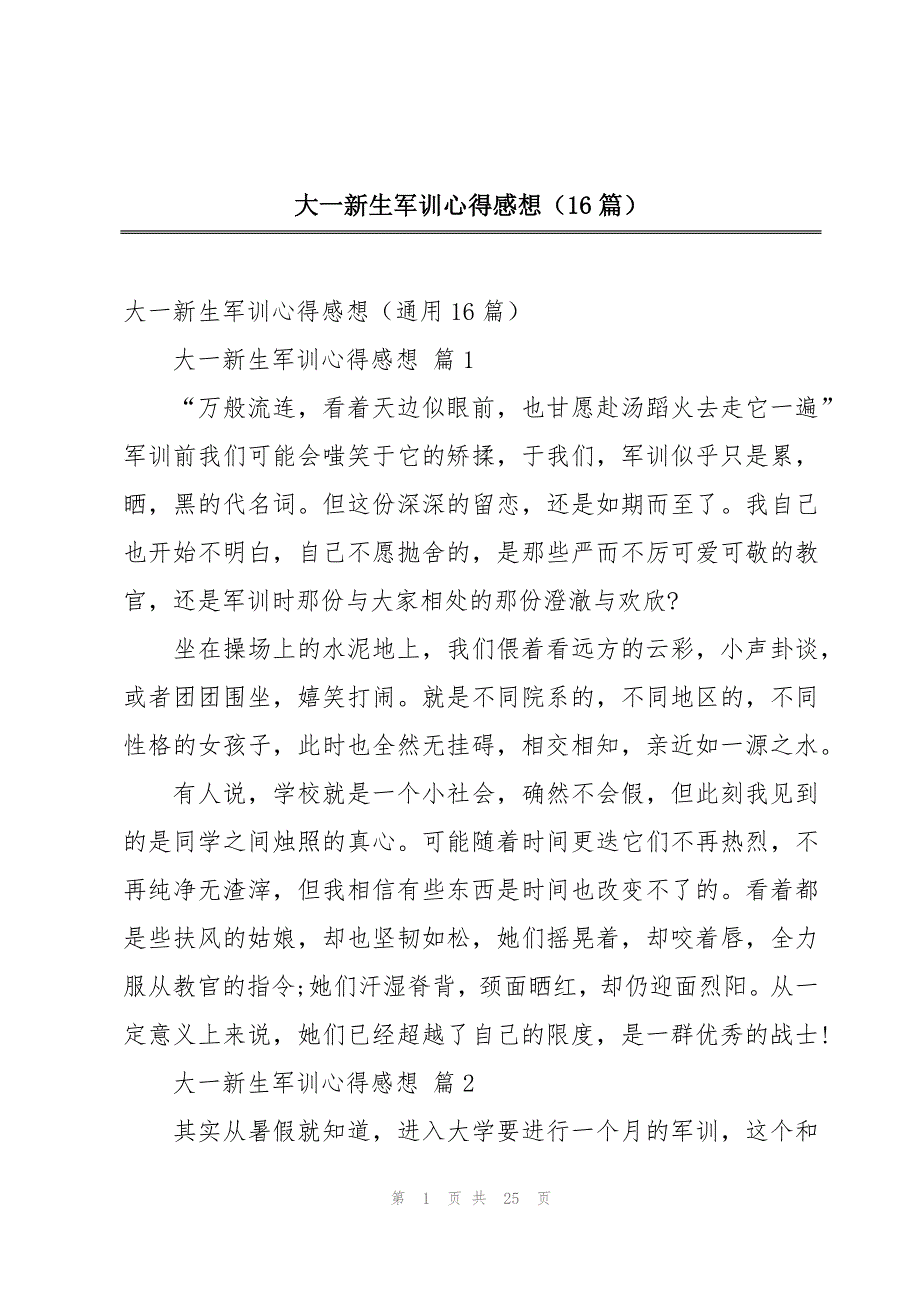 大一新生军训心得感想（16篇）
大一新生军训心得感想（通用16篇）
大一新生军训心得感想 篇1
“万般流连，看着天边似眼前，也甘愿赴汤蹈火去走它一遍”
军训前我们可能会嗤笑于它的矫揉，于我们，军训似乎只是累，
晒，黑的代名词。但这份深深的留恋，还是如期而至了。我自己
也开始不明白，自己不愿抛舍的，是那些严而不厉可爱可敬的教
官，还是军训时那份与大家相处的那份澄澈与欢欣?
坐在操场上的水泥地上，我们偎着看远方的云彩，小声卦谈，
或者团团围坐，嬉笑打闹。就是不同院系的，不同地区的，不同
性格的女孩子，此时也全然无挂碍，相交相知，亲近如一源之水。
有人说，学校就是一个小社会，确然不会假，但此刻我见到
的是同学之间烛照的真心。可能随着时间更迭它们不再热烈，不
再纯净无渣滓，但我相信有些东西是时间也改变不了的。看着都
是些扶风的姑娘，却也坚韧如松，她们摇晃着，却咬着唇，全力
服从教官的指令;她们汗湿脊背，颈面晒红，却仍迎面烈阳。从一
定意义上来说，她们已经超越了自己的限度，是一群优秀的战士!
大一新生军训心得感想 篇2
其实从暑假就知道，进入大学要进行一个月的军训，这个和
第 1 页 共 25 页